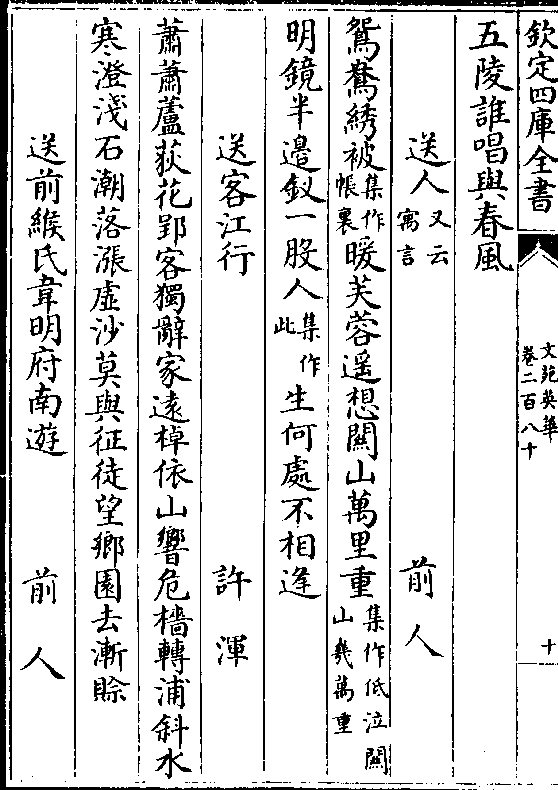 欽定四庫全書
文苑英華
卷二百八十
十
五陵誰唱與春風
送人又云寓言 前人
鴛鴦綉被集作帳裏暖芙蓉遥想關山萬里重集作低泣關山幾萬重
明鏡半邊釵一股人集作此生何處不相逢
送客江行 許渾
蕭蕭蘆荻花郢客獨辭家遠棹依山響危檣轉浦斜水
寒澄淺石潮落漲虛沙莫與征徒望鄉園去漸賖
送前緱氏韋明府南遊 前人